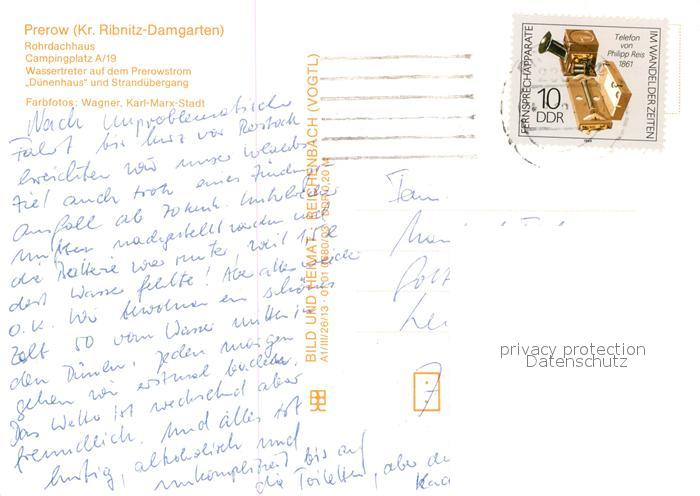 Prerow (Kr. Ribnitz-Damgarten)
Rohrdachhaus
Campingplatz A/19
Wassertreter auf dem Prerowstrom
„Dünenhaus" und Strandübergang
Farbfotos: Wagner, Karl-Marx-Stadt
Nach unproblematischer
Fahrt bis kurz vor Rostock
erreichten wir unser Urlaubs
Ziel auch trotz eines Zünd
ausfall ab
mußten nachgestellt werden und
die Batterie war runter, weil
dest Wasser fehlte! Aber alles wieder
o.K. Wir bewohnen ein schönes
Zelt 50 vom Wasser mitten in
den Dünen. Jeden morgen
gehen wir erstmal baden.
Das Wetter ist wechselnd aber
freundlich. Und alles ist
lustig, alkoholisch und
unkompliziert bis auf
die Toiletten, aber
BILD UND HEIMAT REICHENBACH (VOGTL)
A1/III/26/13
FERNSPRECHAPPARATE
IM WANDEL DER ZEITEN
Telefon
von
Philipp Reis
1861
10
DDR
Fam.
privacy protection
Datenschutz